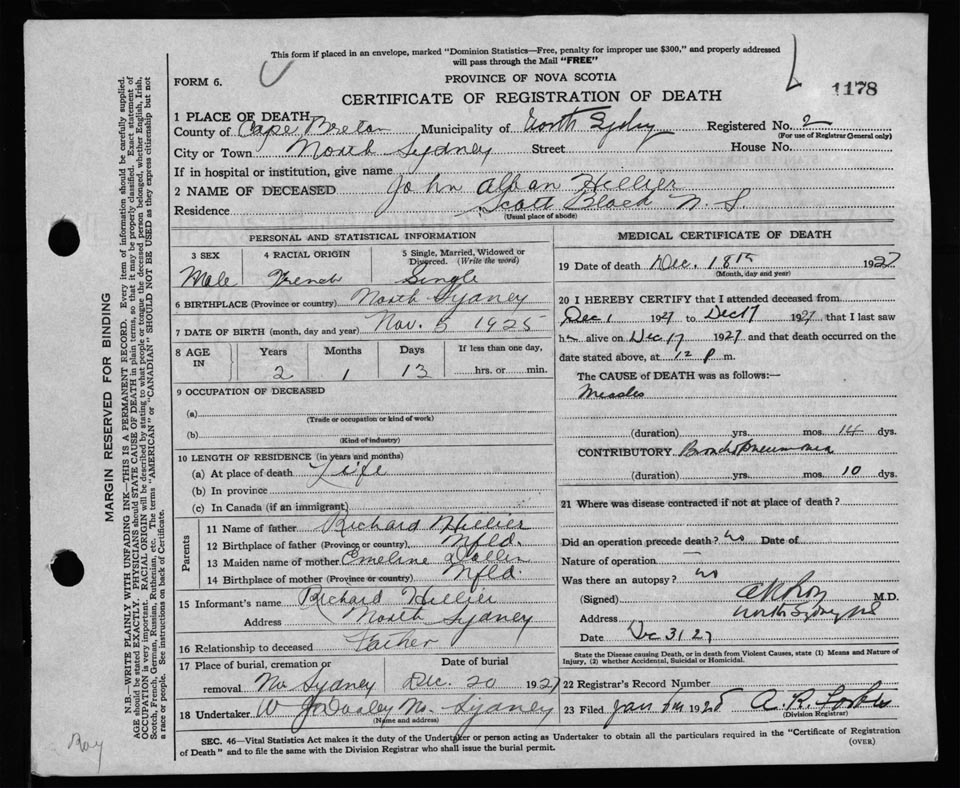 This form if placed in an envelope, marked "Dominion Statistics—Free, penalty for improper use $300," and properly addressed
will pass through the Mail "FREE"
FORM 6.
PROVINCE OF NOVA SCOTIA
1178
CERTIFICATE OF REGISTRATION OF DEATH
1 PLACE OF DEATH
County of Cape Breton Municipality of North Sydney Registered No. 2
(For use of Registrar General only)
City or Town North Sydney Street House No.
If in hospital or institution, give name
2 NAME OF DECEASED John Alban Hillier
Residence Scott N. S.
(Usual place of abode)
PERSONAL AND STATISTICAL INFORMATION
3 SEX 4 RACIAL ORIGIN 5 Single, Married, Widowed or
Divorced. (Write the word)
Male French Single
6 BIRTHPLACE (Province or country) North Sydney
7 DATE OF BIRTH (month, day and year) Nov. 5 1925
8 AGE IN Years Months Days If less than one day,
2 1 13 hrs. or min.
9 OCCUPATION OF DECEASED
(a)
(Trade or occupation or kind of work)
(b)
(Kind of industry)
10 LENGTH OF RESIDENCE (in years and months)
(a) At place of death Life
(b) In province
(c) In Canada (if an immigrant)
Parents
11 Name of father Richard Hillier
12 Birthplace of father (Province or country) Nfld.
13 Maiden name of mother Emeline Dollin
14 Birthplace of mother (Province or country) Nfld.
15 Informant's name Richard Hillier
Address North Sydney
16 Relationship to deceased Father
17 Place of burial, cremation or Date of burial
removal No Sydney Dec. 20 1927
18 Undertaker W J Dooley No. Sydney
(Name and address)
MEDICAL CERTIFICATE OF DEATH
19 Date of death Dec. 18th 1927
(Month, day and year)
20 I HEREBY CERTIFY that I attended deceased from
Dec 1 1927 to Dec 17 1927 that I last saw
h alive on Dec 17 1927 and that death occurred on the
date stated above, at 12 p m.
The CAUSE of DEATH was as follows:—
Measles
(duration) yrs. mos. 14 dys.
CONTRIBUTORY Bronchopneumonia
(duration) yrs. mos. 10 dys.
21 Where was disease contracted if not at place of death?
Did an operation precede death? no Date of
Nature of operation —
Was there an autopsy? no
(Signed) M.D.
Address North Sydney NS
Date Dec 31 27
State the Disease causing Death, or in death from Violent Causes, state (1) Means and Nature of
Injury, (2) whether Accidental, Suicidal or Homicidal.
22 Registrar's Record Number
23 Filed Jan 1928 A. R. Forbes
(Division Registrar)
SEC. 46—Vital Statistics Act makes it the duty of the Undertaker or person acting as Undertaker to obtain all the particulars required in the "Certificate of Registration
of Death" and to file the same with the Division Registrar who shall issue the burial permit. (OVER)
MARGIN RESERVED FOR BINDING
N.B.—WRITE PLAINLY WITH UNFADING INK—THIS IS A PERMANENT RECORD. Every item of information should be carefully supplied.
AGE should be stated EXACTLY. PHYSICIANS should STATE CAUSE OF DEATH in plain terms, so that it may be properly classified. Exact statement of
OCCUPATION is very important. RACIAL ORIGIN will be described by stating to what people or tongue the deceased person belonged, whether English, Irish,
Scotch, French, German, Russian, Ruthenian, etc. The terms "AMERICAN" or "CANADIAN" SHOULD NOT BE USED as they express citizenship but not
a race or people. See instructions on back of Certificate.
Roy